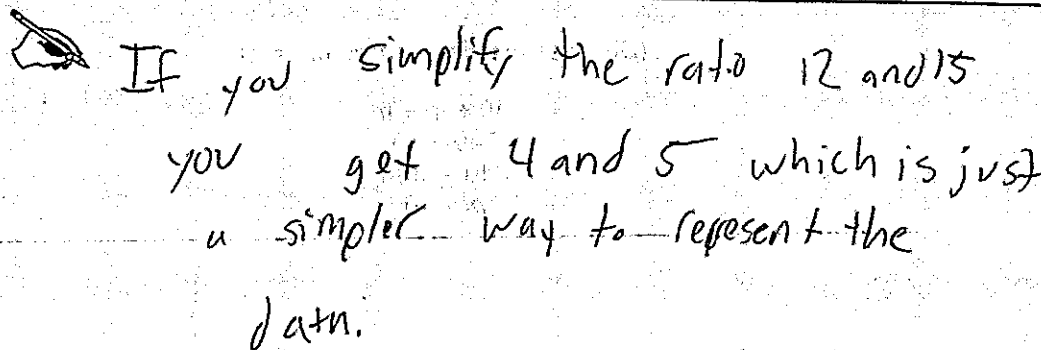 If you simplify the ratio 12 and 15
you get 4 and 5 which is just
a simpler way to represent the
data.